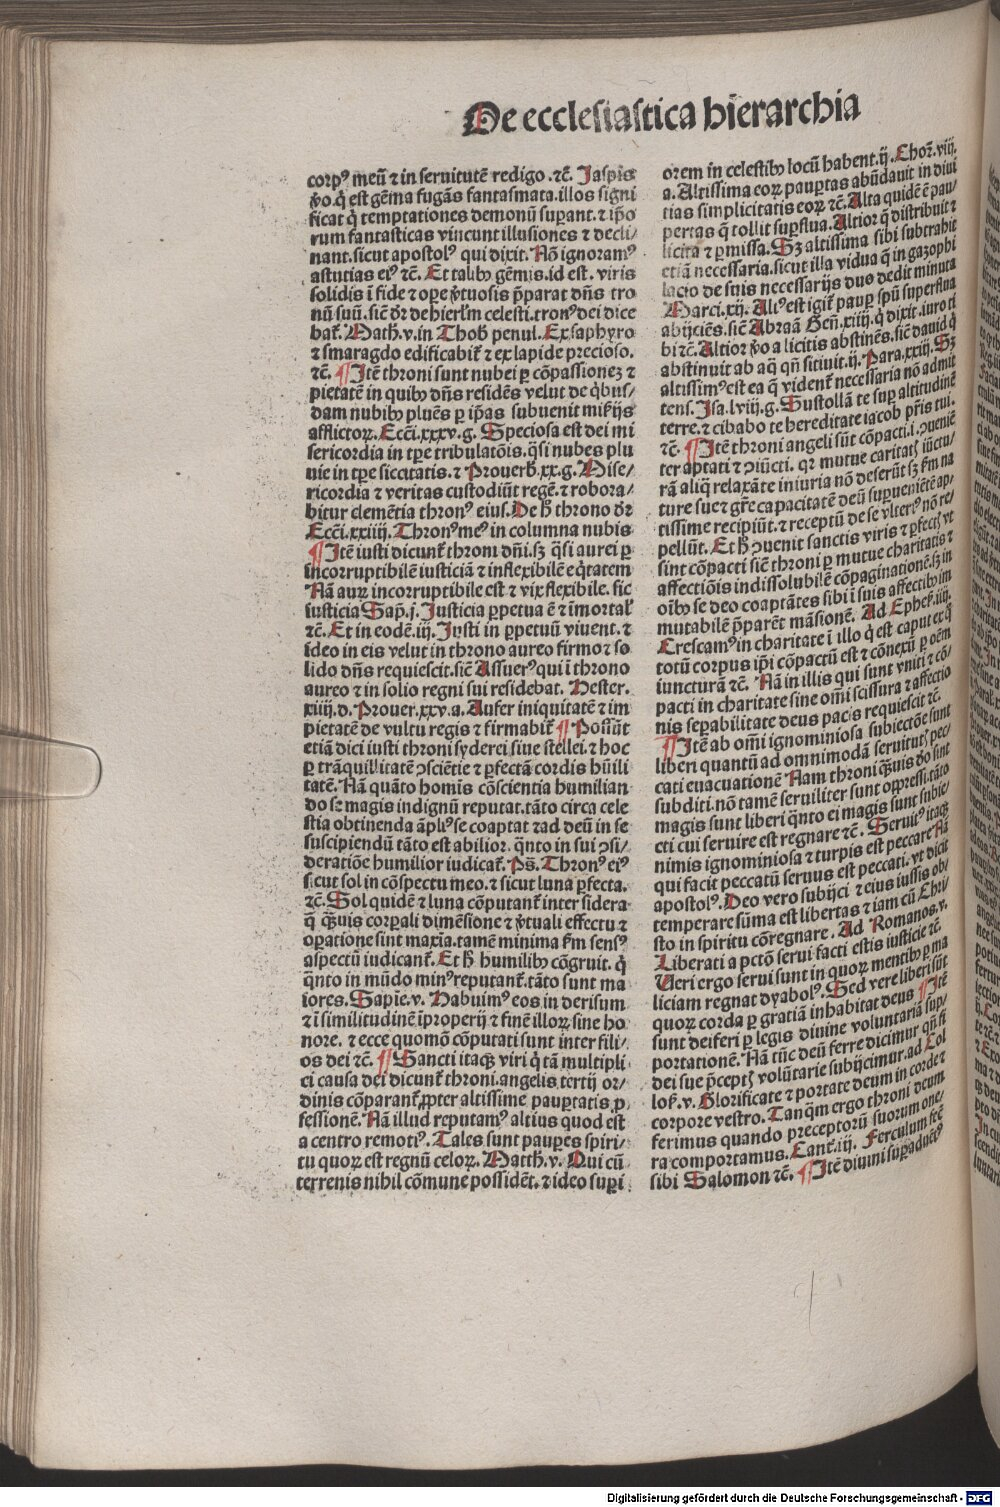 De ecclesiastica hierarchia
corpꝰ meū ⁊ in seruitutē redigo .⁊c̃. Jaspis
v̓o.q̇ est gēma fugās fantasmata.illos signi
ficat q̇ temptationes demonū suꝑant.⁊ ip̄o
rum fantasticas vincunt illusiones ⁊ decli/
nant.sicut apostolꝰ qui dixit. Nō ignoramꝰ
astutias eiꝰ ⁊c̃. Et talibꝰ gēmis.id est . viris
solidis ī fide ⁊ oꝑe v̓tuosis p̄parat dn̄s tro
nū suū.sic̄ dr̄ de hierl̄m celesti.tronꝰ dei dice
bat᷑. Math̄.v.in Thob̄ penul. Ex saphyro
⁊ smaragdo edificabit᷑ ⁊ ex lapide precioso.
⁊c̃. ¶ Itē throni sunt nubei ꝑ cōpassionez ⁊
pietatē in quibꝰ dn̄s residēs velut de q̇bus/
dam nubibꝰ pluēs ꝑ ip̄as subuenit mis̄ijs
afflictoꝝ. Ecc̄i.xxxv.g. Speciosa est dei mi
sericordia in tꝑe tribulatōis.q̄si nubes plu
uie in tꝑe siccitatis.⁊ Prouerb̄.xx.g. Mise/
ricordia ⁊ veritas custodiūt regē.⁊ robora/
bitur clemētia thronꝰ eius. De h̄ throno dr̄
Ecc̄i.xxiiij. Thronꝰ meꝰ in columna nubis
¶ Itē iusti dicunt᷑ throni dn̄i.sꝫ q̄si aurei ꝑ
incorruptibilē iusticiā ⁊ inflexibilē eq̇tatem
Nā auꝝ incorruptibile est ⁊ vix flexibile. sic
iusticia Sap̄.j. Justicia ꝑpetua ē ⁊ īmortal̄
⁊c̃. Et in eodē.iij. Justi in ꝑpetuū viuent. ⁊
ideo in eis velut in throno aureo firmo ⁊ so
lido dn̄s requiescit.sic̄ Assuerꝰ qui ī throno
aureo ⁊ in solio regni sui residebat. Hester.
xiiij.d. Prouer.xxv.a. Aufer iniquitatē ⁊ im
pietatē de vultu regis ⁊ firmabit᷑ ¶ Possūt
etiā dici iusti throni syderei siue stellei.⁊ hoc
ꝑ trāquillitatē ↄsciētie ⁊ ꝑfectā cordis hūili
tatē. Nā quāto homīs cōscientia humilian
do se magis indignū reputat.tāto circa cele
stia obtinenda āplıꝰ se coaptat ⁊ ad deū in se
suscipiendū tāto est abilior. q̄nto in sui ↄsi/
deratiōe humilior iudicat᷑. Ps̄. Thronꝰ eiꝰ
sicut sol in cōspectu meo.⁊ sicut luna ꝑfecta.
⁊c̃. Sol quidē ⁊ luna cōputant᷑ inter sidera
q̄ q̄uis corꝑali dimēsione ⁊ v̓tuali effectu ⁊
oꝑatione sint maxīa.tamē minima ẜm sensꝰ
aspectū iudicant᷑. Et h̄ humilibꝰ cōgruit. q̇
q̄nto in mūdo minꝰ reputant᷑.tāto sunt ma
iores. Sapīe.v. Habuimꝰ eos in derisum
⁊ ī similitudinē īproperij ⁊ finē illoꝝ sine ho
nore. ⁊ ecce quomō cōputati sunt inter fili/
os dei ⁊c̃. ¶ Sancti itaqꝫ viri q̇ tā multipli
ci causa dei dicunt᷑ throni.angelis tertij or/
dinis cōparant᷑ ꝓpter altissime pauꝑtatis ꝓ
fessionē. Nā illud reputamꝰ altius quod est
a centro remotiꝰ. Tales sunt pauꝑes spiri/
tu quoꝝ est regnū celoꝝ. Matth̄.v. Qui cū
terrenis nihil cōmune possidēt.⁊ ideo suꝑi
orem in celestibꝰ locū habent.ij. Choꝝ.viij.
a. Altissima eoꝝ pauꝑtas abūdauit in diui
tias simplicitatis eoꝝ ⁊c̃. Alta quidē ē pau/
pertas q̄ tollit suꝑflua. Altior q̄ distribuit ⁊
licita ⁊ ꝑmissa. Sꝫ altissima sibi subtrahit
etiā necessaria.sicut illa vidua q̄ in gazophi
lacio de suis necessarijs duo dedit minuta
Marci.xij. Altꝰ est igit᷑ pauꝑ spū superflua
abijciēs.sic̄ Abraā Gen̄.xiiij.q̇ dixit.iuro ti
bi ⁊c̃. Altior v̓o a licitis abstinēs.sic̄ dauid q̇
abstinuit ab aq̄ qn̄ sitiuit.ij. Para.xxiij. Sꝫ
altissimꝰ est ea q̄ vident᷑ necessaria nō admit
tens. Isa.lviij.g. Sustollā te suꝑ altitudinē
terre.⁊ cibabo te hereditate iacob pr̄is tui.
⁊c̃. ¶ Itē throni angeli sūt cōpacti.i.ↄueniē
ter aptati ⁊ ↄiūcti. qꝛ mutue caritatꝭ iūctu/
rā aliq̄ relaxāte iniuria nō deserūt sꝫ ẜm na
ture sue ⁊ gr̄e capacitatē deū suꝑueniētē ap/
tissime recipiūt.⁊ receptū de se vlteriꝰ nō re/
pellūt. Et h̄ ↄuenit sanctis viris ⁊ ꝑfectꝭ vt
sint cōpacti sic̄ throni ꝑ mutue charitatis ⁊
affectiōis indissolubilē cōpaginationē.sꝫ in
oībꝰ se deo coaptātes sibi ī suis affectibꝰ im
mutabilē p̄parēt māsionē. Ad Ephes̄.iiij.
Crescamꝰ in charitate ī illo q̇ est caput ex q̊
totū corpus ip̄i cōpactū est ⁊ cōnexū ꝑ oēm
iuncturā ⁊c̃. Nā in illis qui sunt vniti ⁊ cō/
pacti in charitate sine om̄i scissura ⁊ affectio
nis seꝑabilitate deus pacis requiescit ⁊c̃.
¶ Itē ab om̄i ignominiosa subiectōe sunt
liberi quantū ad omnimodā seruitutꝭ pec/
cati euacuationē Nam throni q̄uis do sint
subditi.nō tamē seruiliter sunt oppressi.tāto
magis sunt liberi q̄nto ei magis sunt subie/
cti cui seruire est regnare ⁊c̃. Seruitꝰ itaqꝫ
nimis ignominiosa ⁊ turpis est peccare Nā
qui facit peccatū seruus est peccati. vt dicit
apostolꝰ. Deo vero subijci ⁊ eius iussis ob/
temperare sūma est libertas ⁊ iam cū Chri/
sto in spiritu cōregnare. Ad Romanos.v.
Liberati a pctō serui facti estis iusticie ⁊c̃.
Veri ergo serui sunt in quoꝝ mentibꝰ ꝑ ma
liciam regnat dyabolꝰ. Sed vere liberi sūt
quoꝝ corda ꝑ gratiā inhabitat deus ¶ Itē
sunt deiferi ꝑ legis diuine voluntariā sup/
portationē. Nā tūc deū ferre dicimur qn̄ si
dei sue p̄ceptꝭ volūtarie subijcimur.ad Col
los̄.v. Glorificate ⁊ portate deum in corde ⁊
corpore vestro. Tanq̄m ergo throni deum
ferimus quando preceptorū suorum one/
ra comportamus. Cant᷑.iij. Ferculum fec̄
sibi Salomon ⁊c̃. ¶ Itē diuini suꝑaduētꝰ
Digitalisierung gefördert durch die Deutsche Forschungsgemeinschaft - DFG